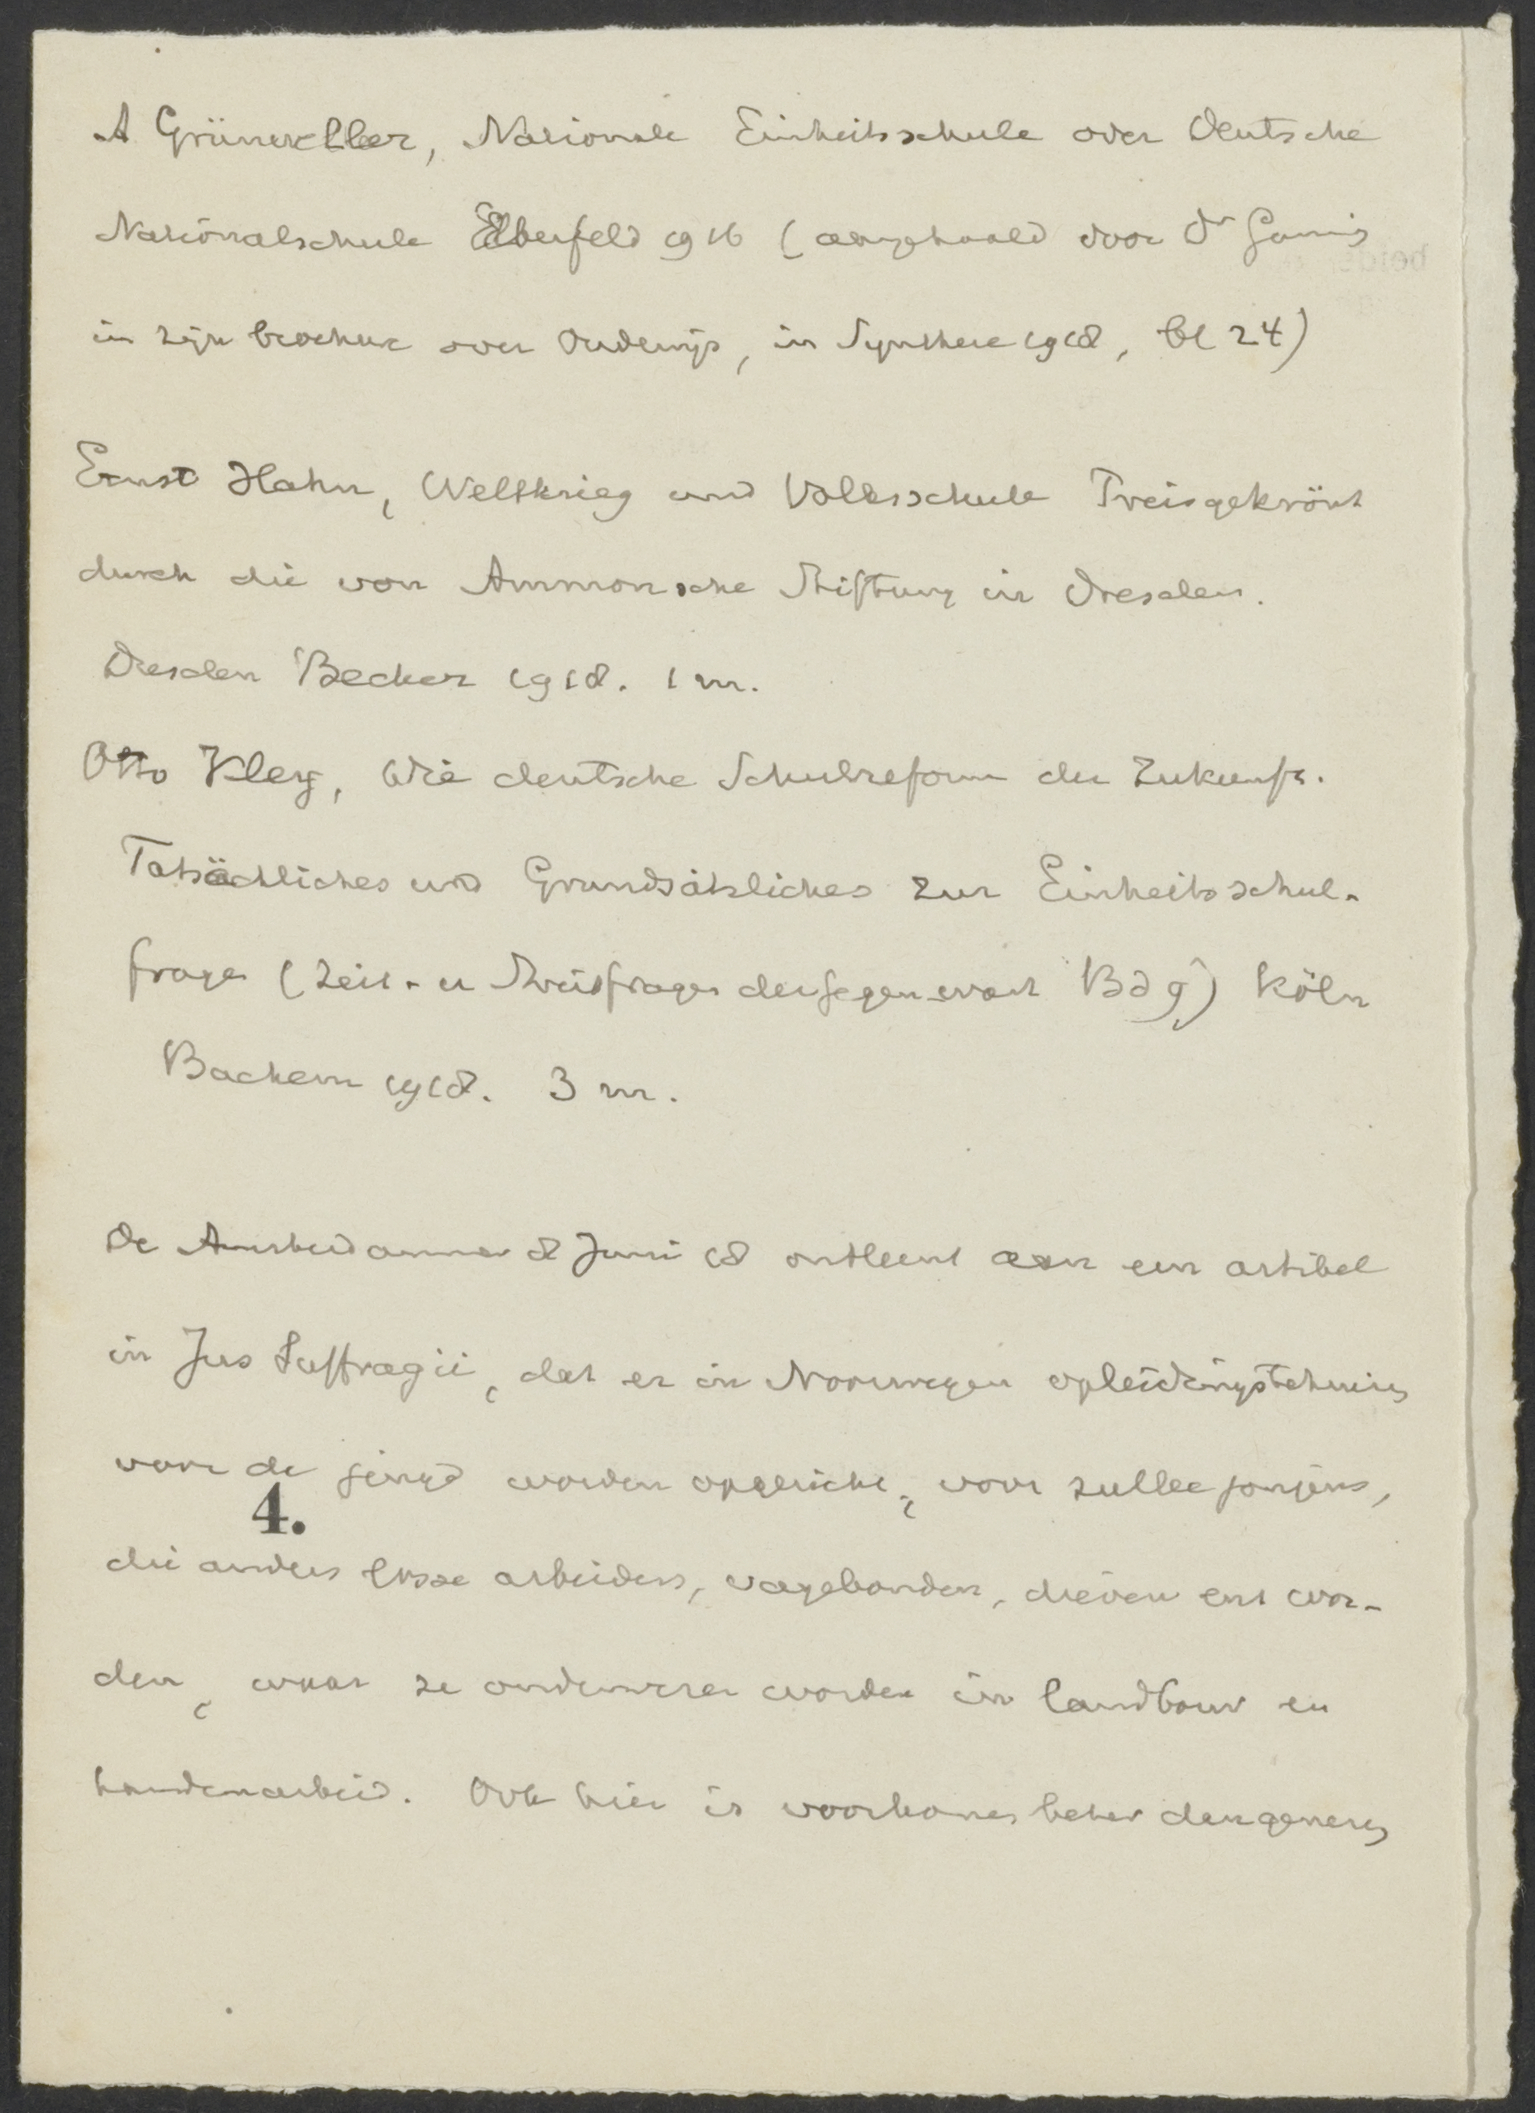 A Grüneklee, Nationale Einheitsschule oder Deutsche
Nationalschule Elberfeld 1916 (aangehaald door Dr
in zijn brochure over Onderwijs, in Synthese 1918, bl 24)
Ernst Hahn, Weltkrieg und Volksschule Preisgekrönt
durch die von Ammonsche Stiftung in Dresden.
Dresden Becker 1918. 1 m.
Otto Kley, Die deutsche Schulreform der Zukunft.
Tatsächliches und Grundsätzliches zur Einheitsschul-
frage (Zeit- u Streitfragen der Gegenwart Bd 9) Köln
Bachem 1918. 3 m.
De Amsterdammer 8 Juni 18 ontleent aan een artikel
in Jus Suffragii, dat er in Noorwegen opleidingstehuizen
voor de jeugd worden opgericht, voor zulke jongens,
4.
die anders losse arbeiders, vagebonden, dieven enz wor-
den, waar ze onderwezen worden in landbouw en
handenarbeid. Ook hier is voorkomen beter dan genezen